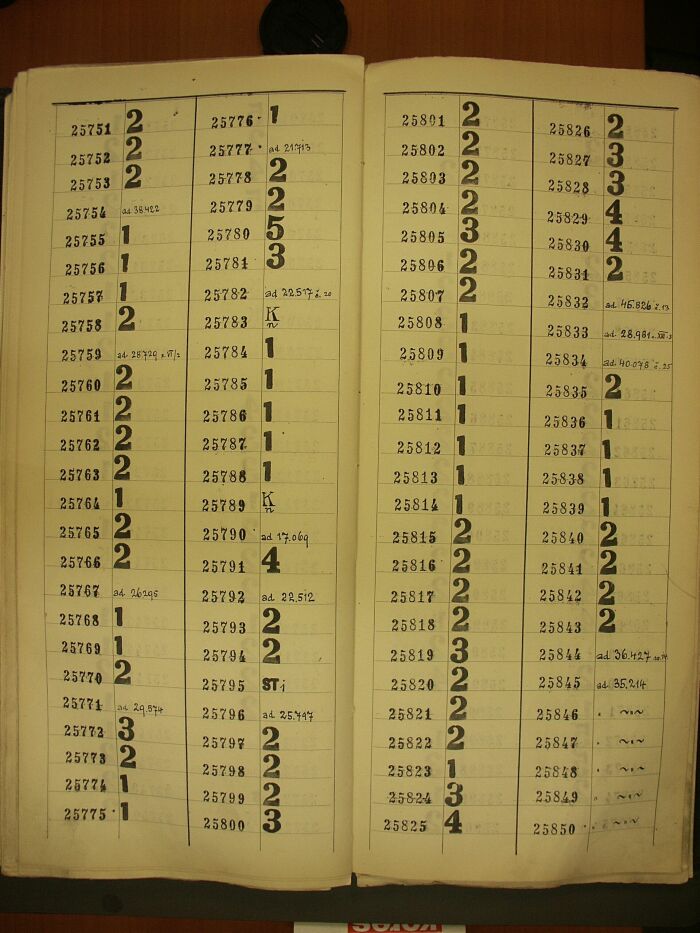 25751 2
25752 2
25753 2
25754 ad 38422
25755 1
25756 1
25757 1
25758 2
25759 ad 28729 VI/2
25760 2
25761 2
25762 2
25763 2
25764 1
25765 2
25766 2
25767 ad 26295
25768 1
25769 1
25770 2
25771 ad 29.574
25772 3
25773 2
25774 1
25775 1
25776 1
25777 ad 21713
25778 2
25779 2
25780 5
25781 3
25782 ad 22.517 č. 20
25783 K n
25784 1
25785 1
25786 1
25787 1
25788 1
25789 K n
25790 ad 17.069
25791 4
25792 ad 22.512
25793 2
25794 2
25795 STi
25796 ad 25.797
25797 2
25798 2
25799 2
25800 3
25801 2
25802 2
25803 2
25804 2
25805 3
25806 2
25807 2
25808 1
25809 1
25810 1
25811 1
25812 1
25813 1
25814 1
25815 2
25816 2
25817 2
25818 2
25819 3
25820 2
25821 2
25822 2
25823 1
25824 3
25825 4
25826 2
25827 3
25828 3
25829 4
25830 4
25831 2
25832 ad 45.826 č. 13
25833 ad 28.981
25834 ad 40.078 č. 25
25835 2
25836 1
25837 1
25838 1
25839 1
25840 2
25841 2
25842 2
25843 2
25844 ad 36.427
25845 ad 35.214
25846 " ~"~
25847 " ~"~
25848 " ~"~
25849 " ~"~
25850 " ~"~